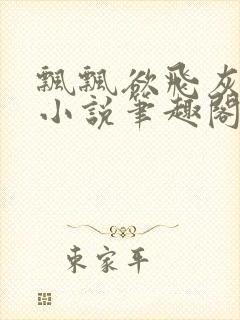 飄飄欲飛灰
小說筆趣閣
東家平